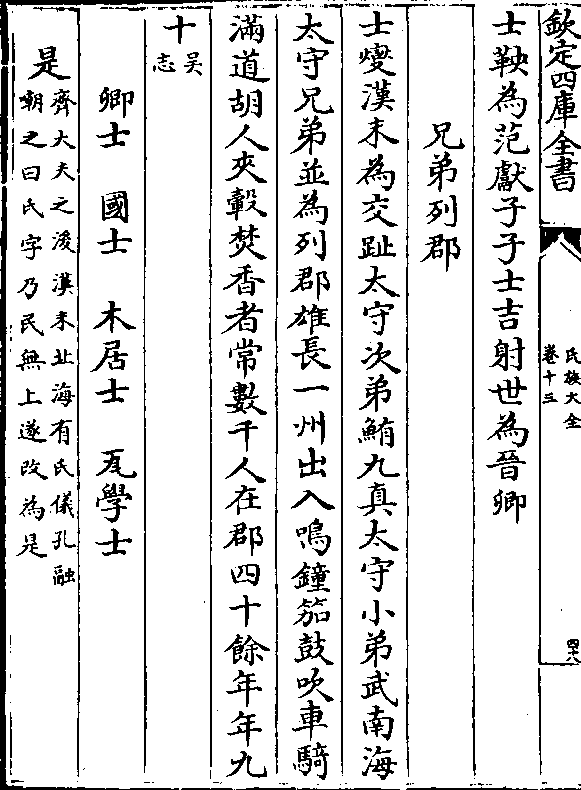 欽定四庫全書
氏族大全
卷十三
四十八
士鞅為范獻子子士吉射世為晉卿
兄弟列郡
士燮漢末為交趾太守次弟䵋九真太守小弟武南海
太守兄弟並為列郡雄長一州出入鳴鐘笳鼓吹車騎
滿道胡人夾轂焚香者常數千人在郡四十餘年年九
十
吴
志
卿士 國士 木居士 瓦學士
是
齊大夫之後漢末北海有氏儀孔融
嘲之曰氏字乃民無上遂改為是